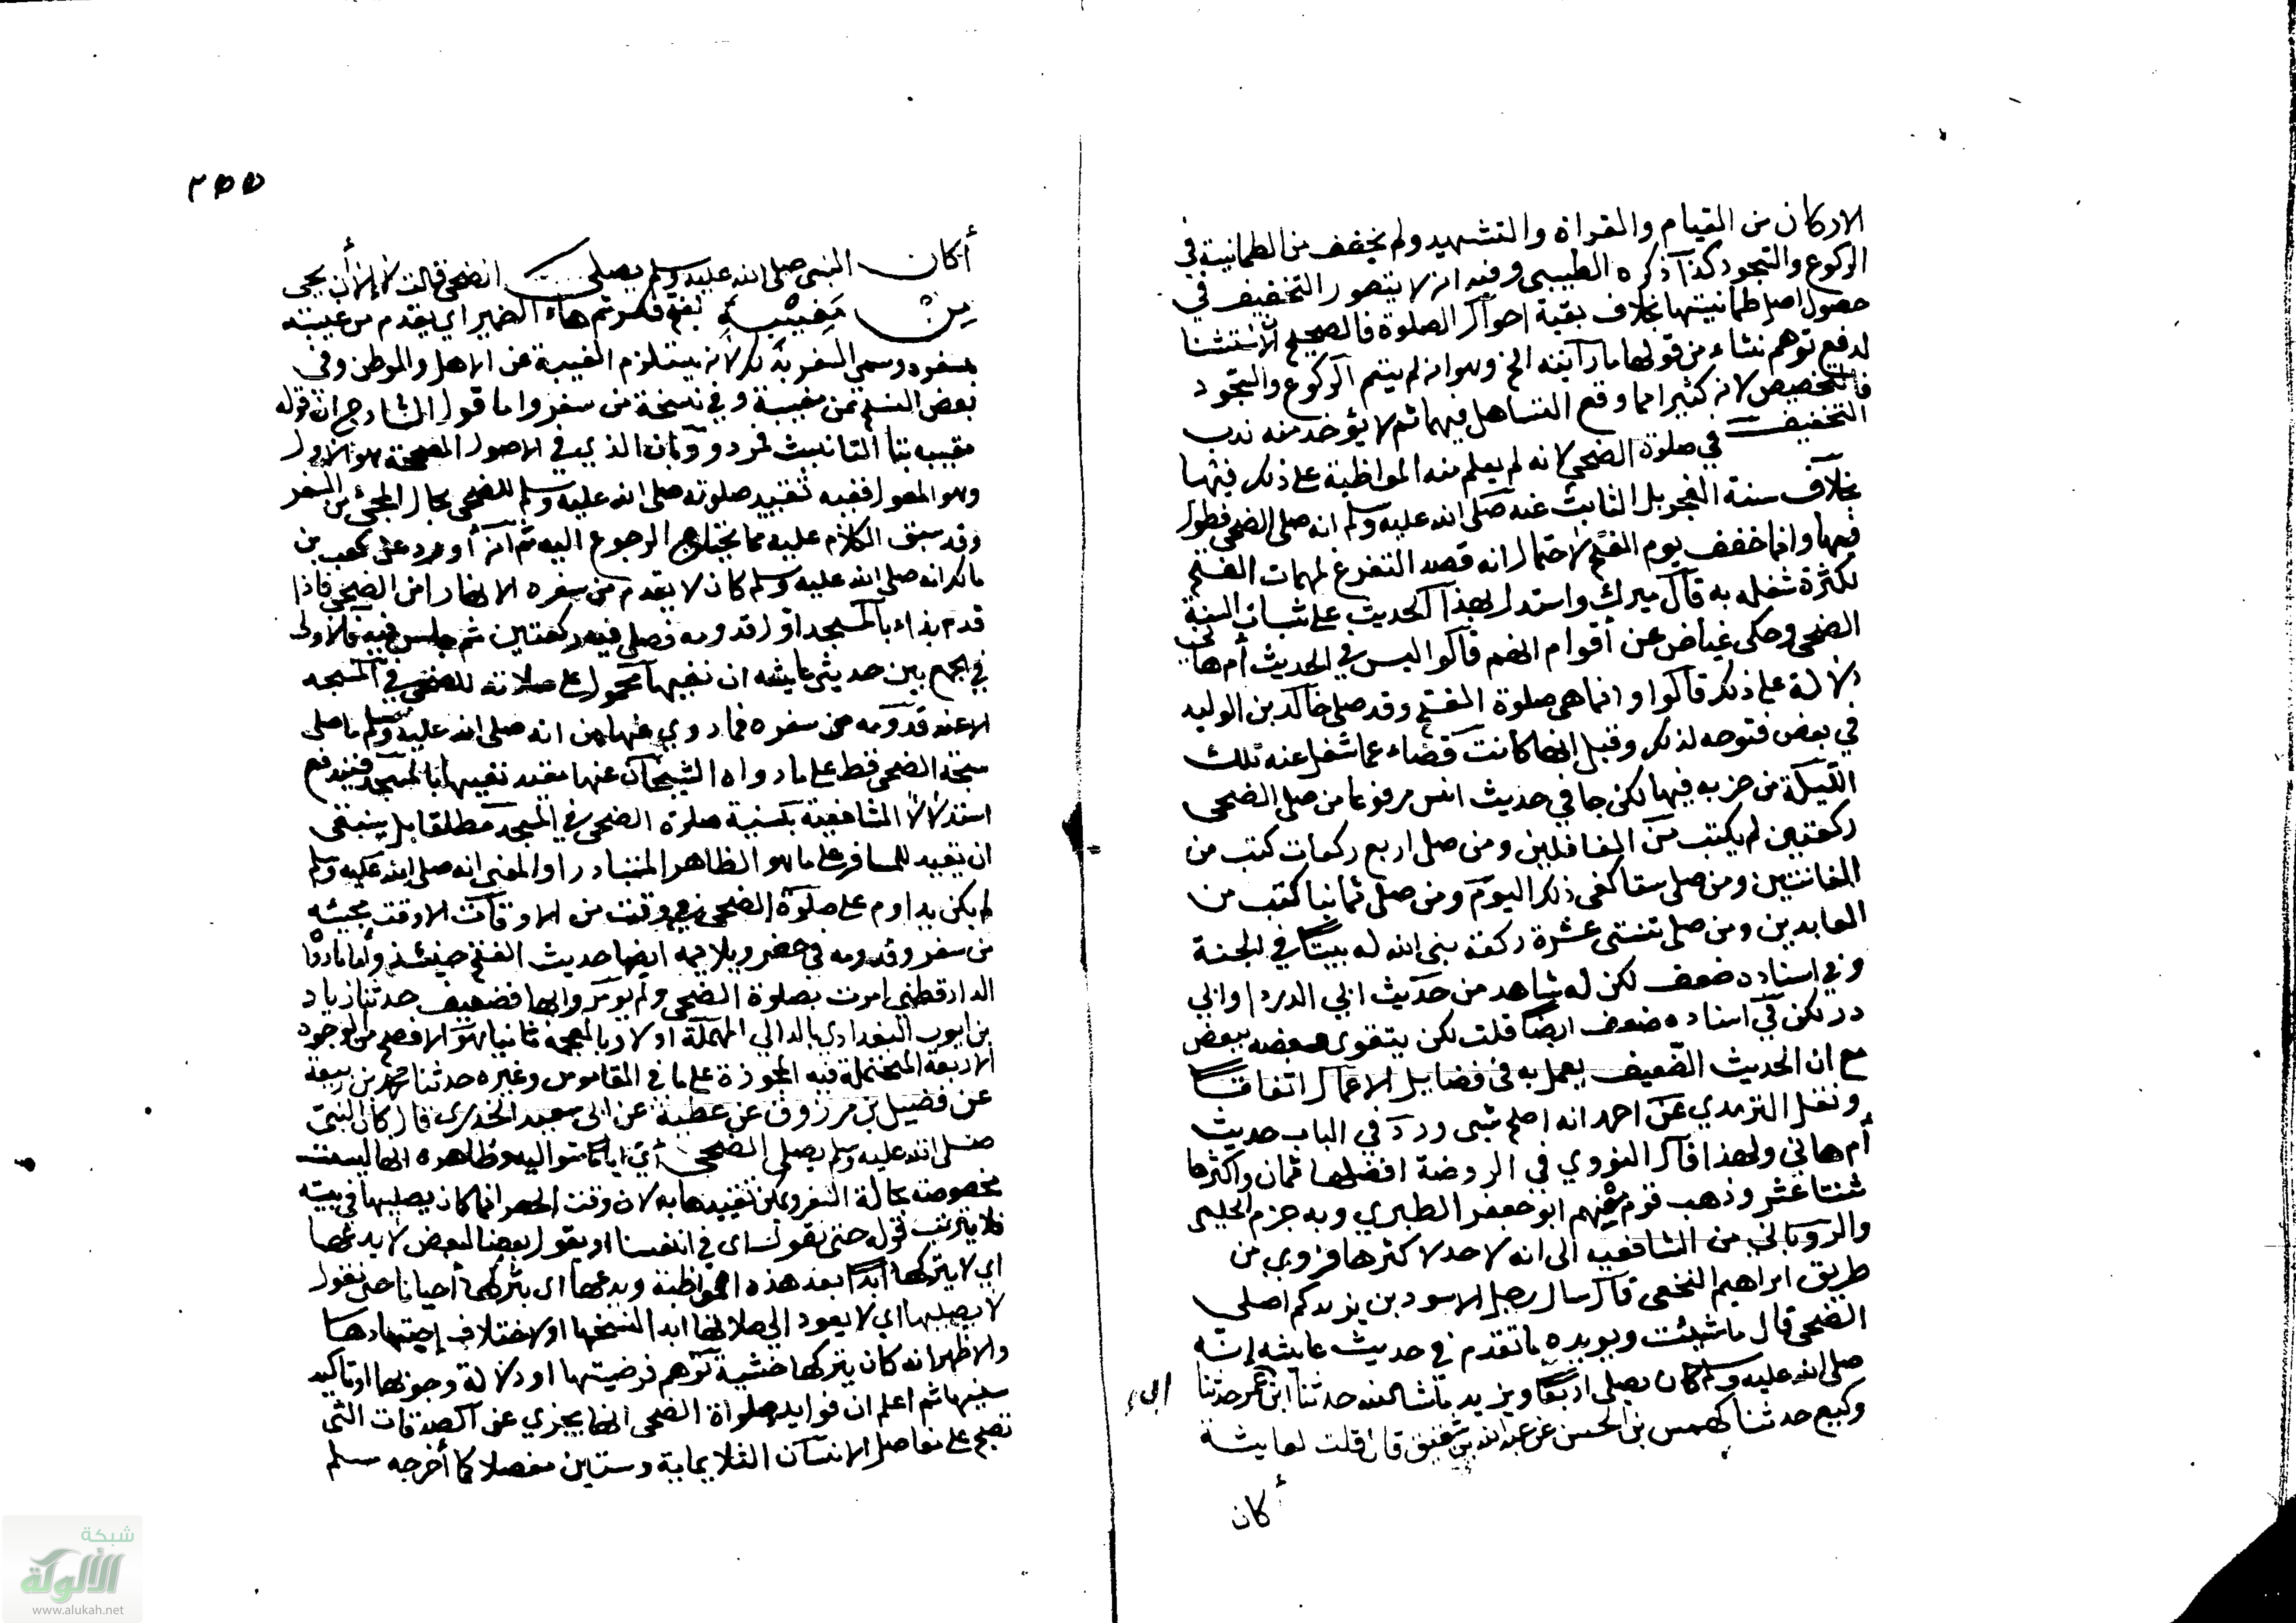 الاركان من القيام والقراة والتشهيد ولم يخفف من الطمانينة في
الركوع والسجود كذا ذكره الطيبي وفيه انه لا يتصور التخفيف في
حصول اصل طمانينتها بخلاف بقية احوال الصلوة فالصحيح الاستثنا
لدفع توهم نشاء من قولها ما رايته الخ وهو انه لم يتم الركوع والسجود
فالتخصيص لانه كثيرا مما وقع التساهل فيهما ثم لا يؤخذ منه ندب
التخفيف في صلوة الضحى لانه لم يعلم منه المواظبة على ذلك فيها
بخلاف سنة الفجر بل الثابت عنه صلى الله عليه وسلم انه صلى الضحى فطول
فيها وانما خفف يوم الفتح لاحتمال انه قصد التفرغ لمهمات الفتح
لكثرة شغله به قال ميرك واستدل بهذا الحديث على ثبات السنة
الضحى وحكى عياض عن اقوام انهم قالوا ليس في الحديث أم هاني
دلالة على ذلك قالوا وانما هي صلوة الفتح وقد صلى خالد بن الوليد
في بعض فتوحه لذلك وقيل انها كانت قضاء عما شغل عنه تلك
الليلة من حزبه فيها لكن جا في حديث انس مرفوعا من صلى الضحى
ركعتين لم يكتب من الغافلين ومن صلى اربع ركعات كتب من
القانتين ومن صلى ستا كفى ذلك اليوم ومن صلى ثمانيا كتب من
العابدين ومن صلى تنتى عشرة ركعة بنى الله له بيتا في الجنة
وفي اسناده ضعف لكن له شاهد من حديث ابي الدردا وابي
ذر لكن في اسناده ضعف ايضا قلت لكن يتقوى بعضه ببعض
مع ان الحديث الضعيف يعمل به في فضايل الاعمال اتفاقا
ونقل الترمدي عن احمد انه اصح شي ورد في الباب حديث
أم هاني ولهذا قال النووي في الروضة افضلها ثمان واكثرها
ثنتا عشر وذهب قوم منهم ابو جعفر الطبري وبه جزم الحليمي
والروياني من الشافعيه الى انه لا حد لاكثرها فروي من
طريق ابراهيم النخعي قال سال رجل الاسود بن يزيد كم اصلي
الضحى قال ما شيئت ويويده ما تقدم في حديث عايشه انه
صلى الله عليه وسلم كان يصلي اربعا ويزيد ما شا الله حدثنا ابن عمر حدثنا
وكيع حدثنا كهمس بن الحسن عن عبد الله بن شقيق قال قلت لعايشة
كان
٢٥٥
أكان النبي صلى الله عليه وسلم يصلي الضحى قالت لا الا أن يجي
من مغيبه بفتح فكسر ثم هاء الضمير اي يقدم من غيبته
بسفره وسمي السفر بذلك لانه يستلزم الغيبة عن الاهل والموطن وفي
بعض النسخ من مغيبة وفي نسخة من سفر واما قول الشارح ان قوله
مغيبه بتا التانيث فمردود بان الذي في الاصول المصححة هو الاول
وهو المعول ففيه تقييد صلوته صلى الله عليه وسلم للضحى بحال المجئ من السفر
وقد سبق الكلام عليه مما يحتاج الرجوع اليه ثم انه أورد عن كعب بن
مالك انه صلى الله عليه وسلم كان لا يقدم من سفره الا نهارا من الضحى فاذا
قدم بداء بالمسجد اول قدومه فصلى فيه ركعتين ثم جلس فيه فالاولى
في الجمع بين حديثي عايشه ان نفيها محمول على صلاته للضحى في المسجد
الا عند قدومه من سفره فما روي عنها من انه صلى الله عليه وسلم ما صلى
سبحة الضحى قط على ما رواه الشيخان عنها مقيد نفيها بالمسجد فيندفع
استدلال الشافعية بسنية صلوة الضحى في المسجد مطلقا بل ينبغي
ان يقيد للمسافر على ما هو الظاهر المتبادر او المعنى انه صلى الله عليه وسلم
لم يكن يداوم على صلوة الضحى في وقت من الاوقات الا وقت مجيئه
من سفر وقدومه في حضر ويلايمه ايضا حديث الفتح حينئذ واما ما روا
الدارقطني امرت بصلوة الضحى ولم يومروا بها فضعيف حدثنا زياد
بن ايوب البغدادي بالدالي المهملة اولا وبالمعجمة ثانيا هو الافصح من الوجوه
الاربعة المحتملة فيه المجوزة على ما في القاموس وغيره حدثنا محمد بن ربيعة
عن فضيل بن مرزوق عن عطية عن ابي سعيد الخدري قال كان النبي
صلى الله عليه وسلم يصلي الضحى أي اياما متواليه وظاهره انها ليست
مخصوصة بحالة السفر ويمكن تقييدها به لان وقت الحضر انما كان يصليها في بيته
فلا يترتب قوله حتى نقول اى في انفسنا او يقول بعضنا لبعض لا يدعها
اي لا يتركها ابدا بعد هذه المواظبة ويدعها اى يتركها أحيانا حتى نقول
لا يصليها اي لا يعود الى صلاتها ابدا لنسخها او لاختلاف إجتهادها
والاظهر انه كان يتركها خشية توهم فرضيتها او دلالة وجوبها او تاكيد
سنيتها ثم اعلم ان فوايد صلواة الضحى انها يجزي عن الصدقات التي
تصبح على مفاصل الانسان الثلا يماية وستين مفصلا كما أخرجه مسلم
شبكة
الألوكة
www.alukah.net